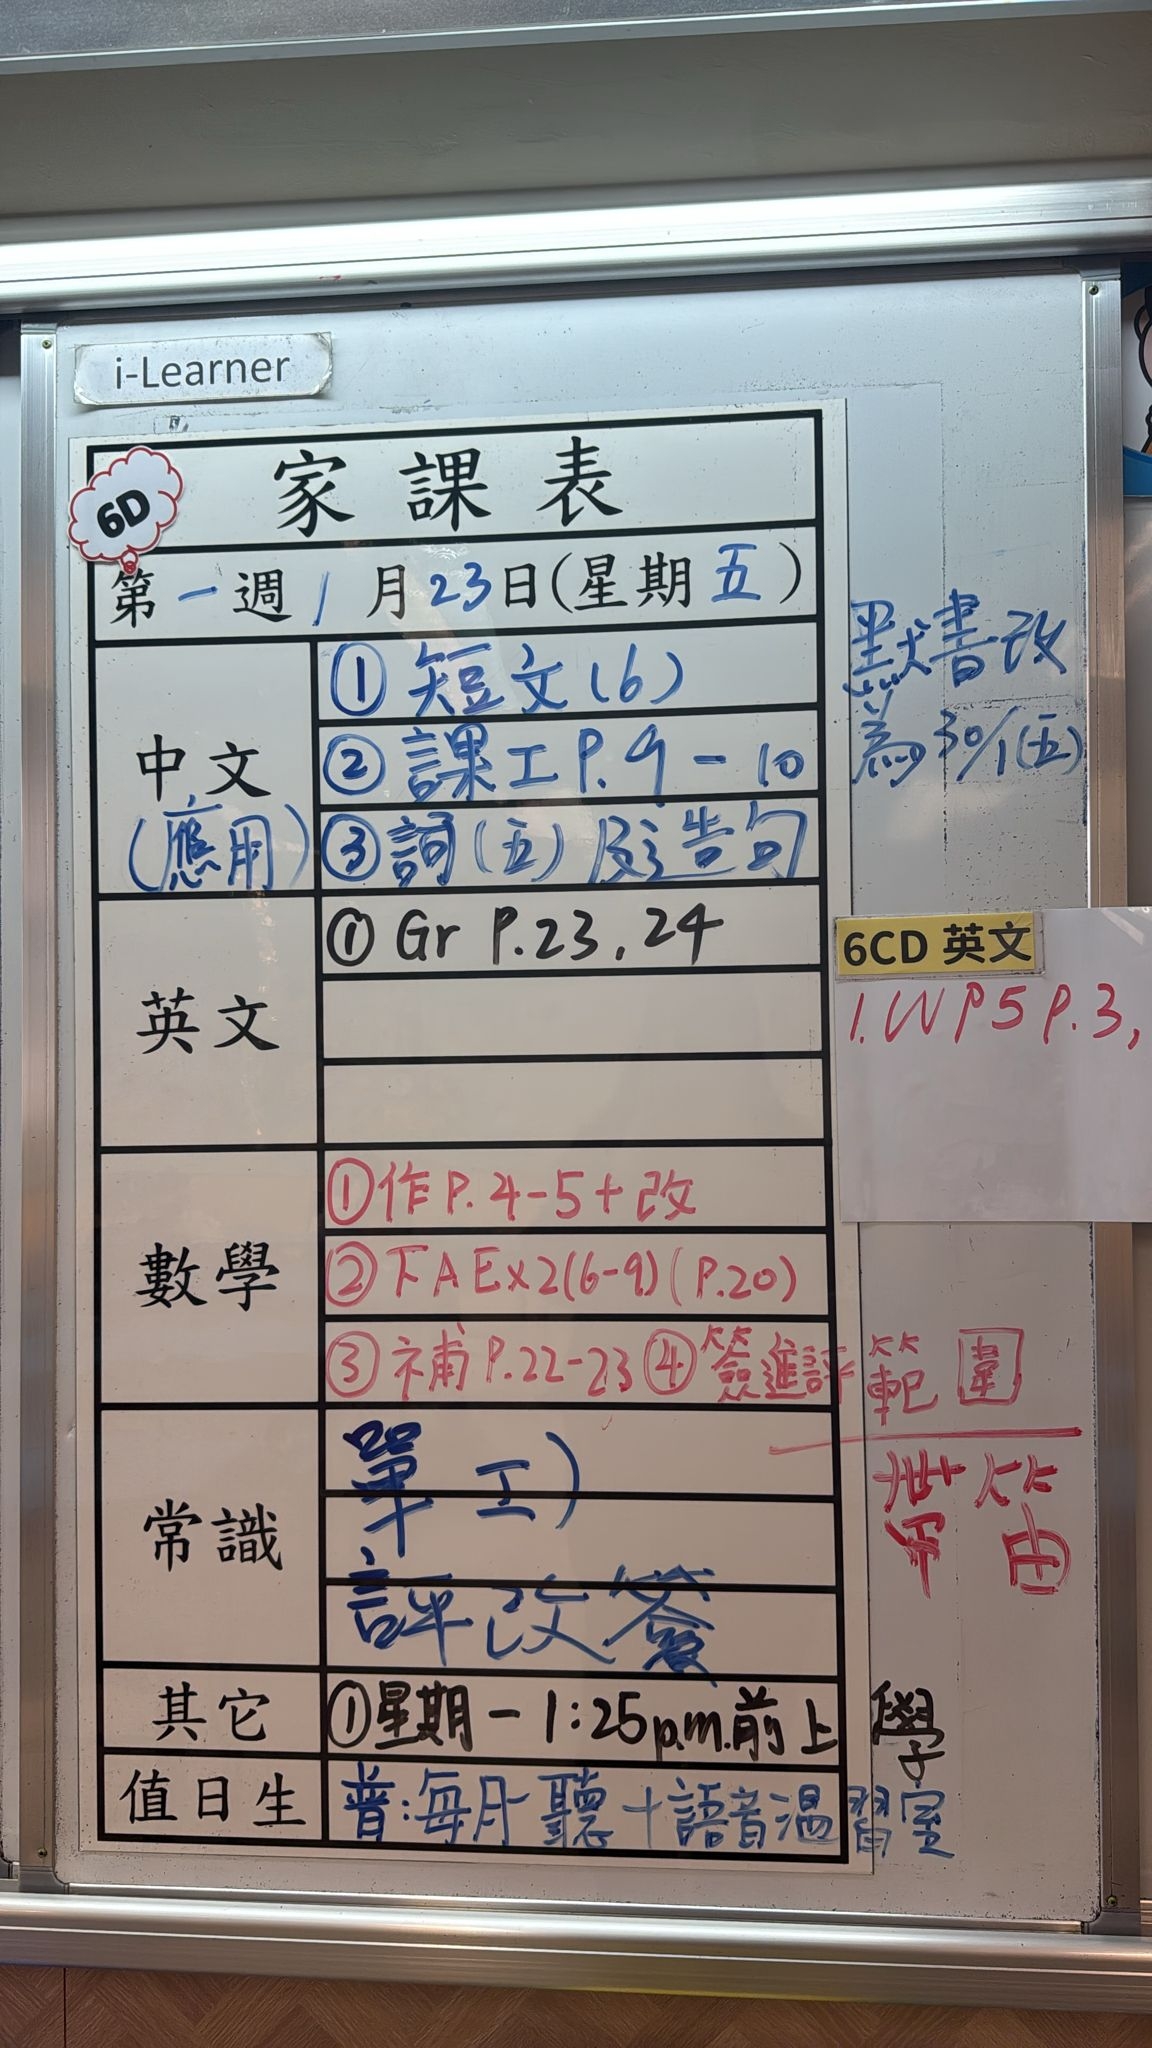 i-Learner
6D
家課表
第一週 1月23日(星期五)
默書改
為30/1(五)
中文
(應用)
① 短文(6)
② 課工P.9-10
③ 詞(五)及造句
英文
① Gr P.23, 24
6CD 英文
1. WP5 P.3,
數學
① 作P.4-5+改
② 下AEx2(6-9)(P.20)
③ 補P.22-23 ④ 簽進評範圍
帶笛
常識
單工)
評改簽
其它
① 星期一 1:25p.m.前上學
值日生
普:每月聽+語音溫習室